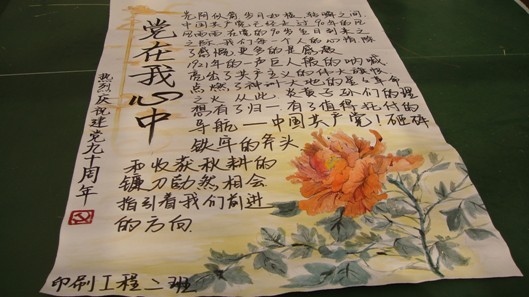 党在我心中
热烈庆祝建党九十周年
光阴似箭岁月如梭,转瞬之间
中国共产党已经走过90年的风
风雨雨在党的90岁生日到来之
之际,我们每一个人的心情除
了感慨更多的是感恩
1921年的一声巨人般的呐喊
亮出了共产主义的伟大旗帜
点燃了神州大地的星星革命
之火从此,炎黄子孙们的理
想有了归一有了值得托付的
导航——中国共产党!砸碎
铁牢的斧头
和收获秋耕的
镰刀劭然相会
指引着我们前进
的方向
印刷工程二班